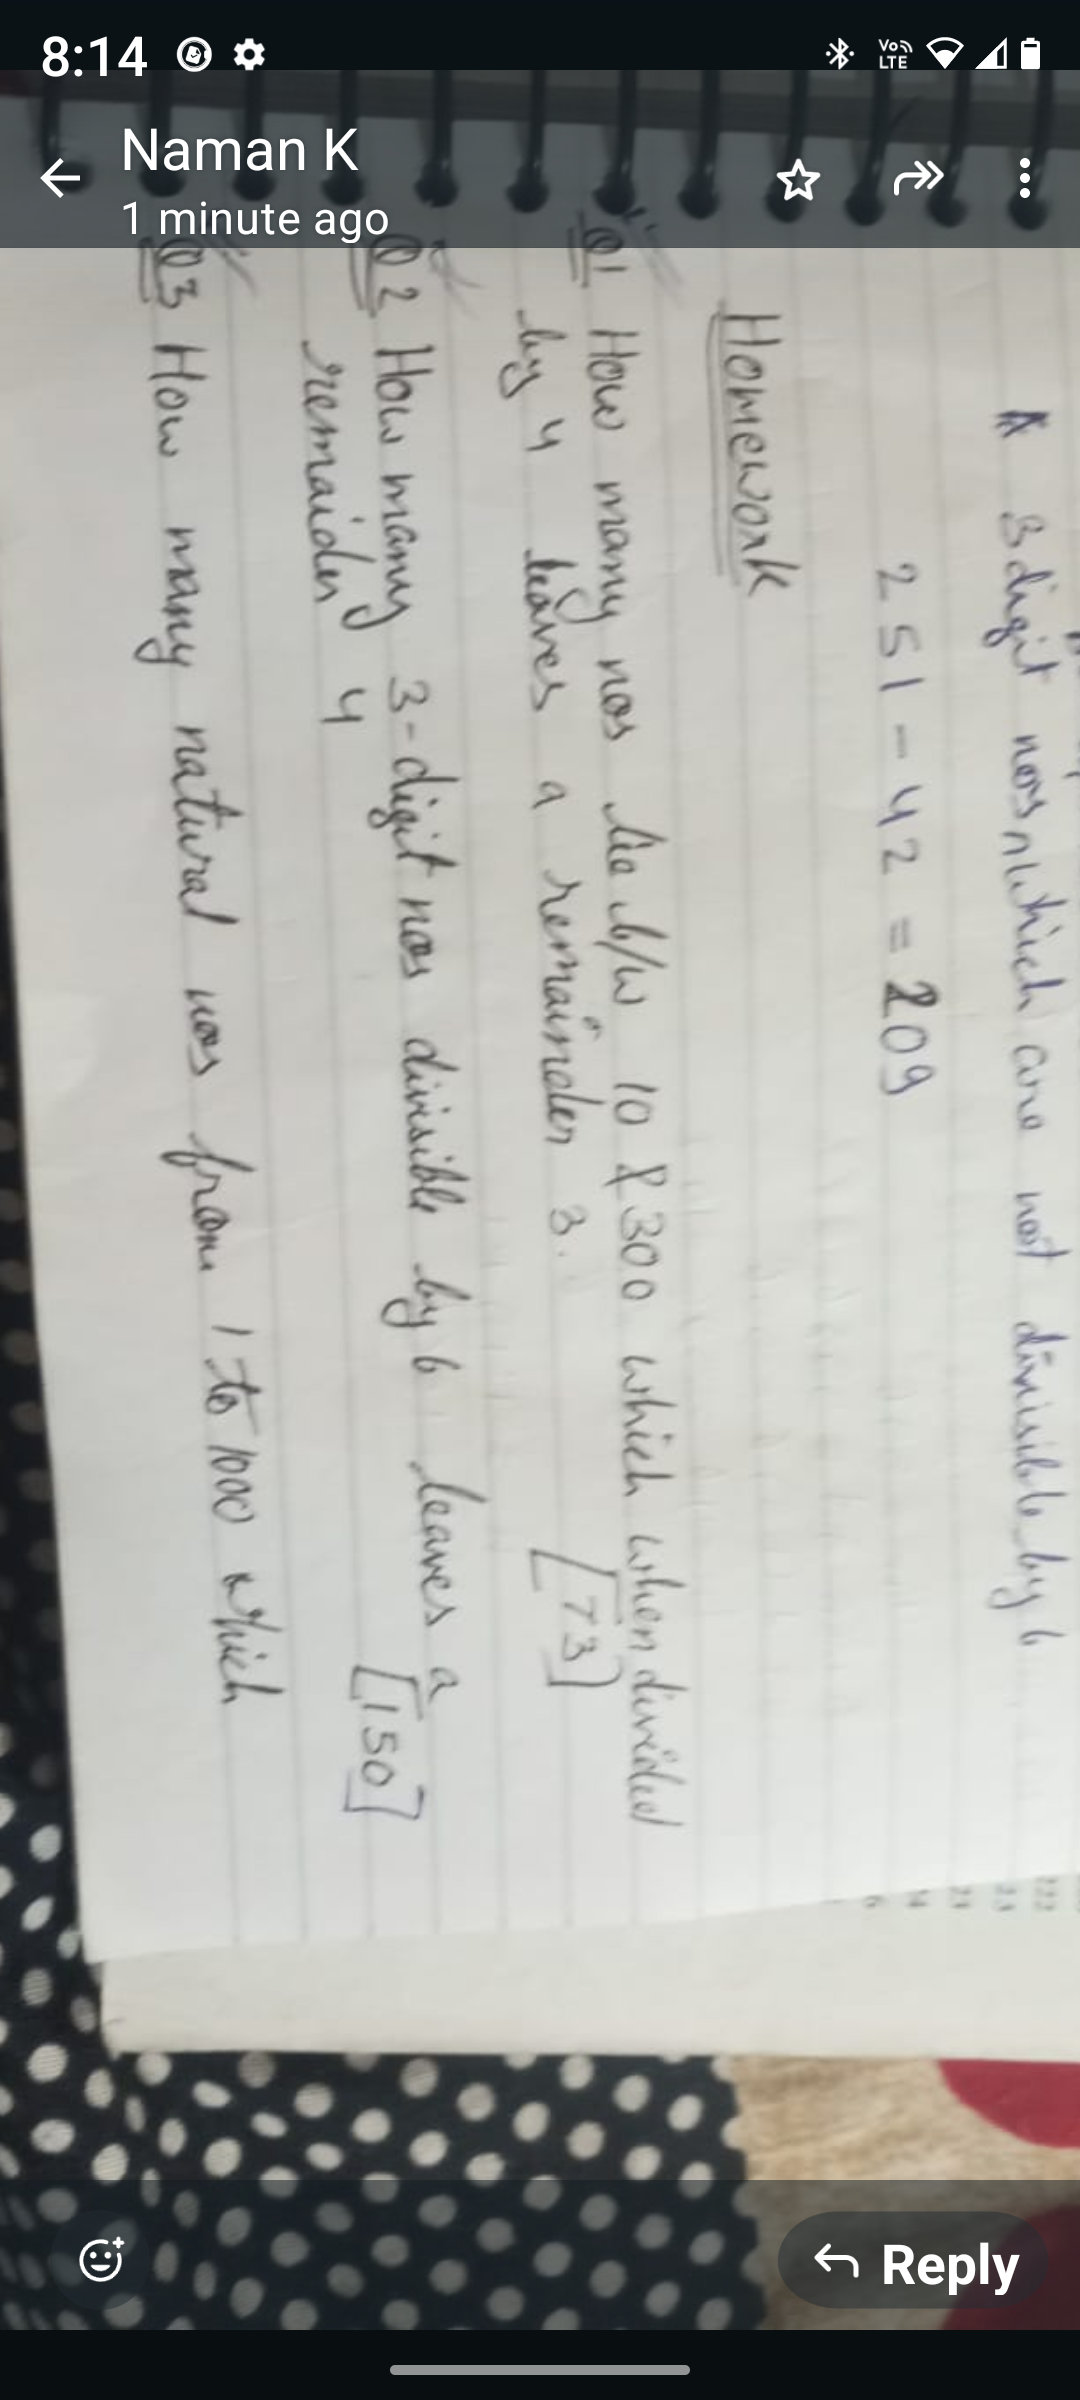 8:14
Vo LTE
Naman K
1 minute ago
A 3 digit nos which are not divisible by 6
251 - 42 = 209
Homework
Q1 How many nos lie b/w 10 & 300 which when divided
by 4 leaves a remainder 3. [73]
Q2 How many 3-digit nos divisible by 6 leaves a
remaider 4 [150]
Q3 How many natural nos from 1 to 1000 which
222
23
23
14
6
Reply